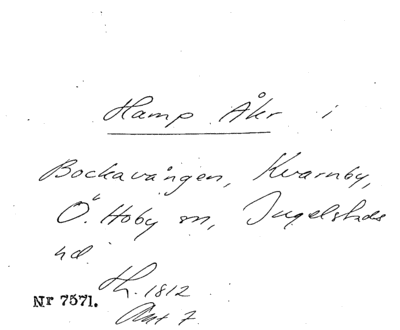 Hamp Åkr i
Bockavången, Kvarnby,
Ö. Hoby sn, Ingelstads
hd.
Sk. 1812
Akt 7
Nr 7571.